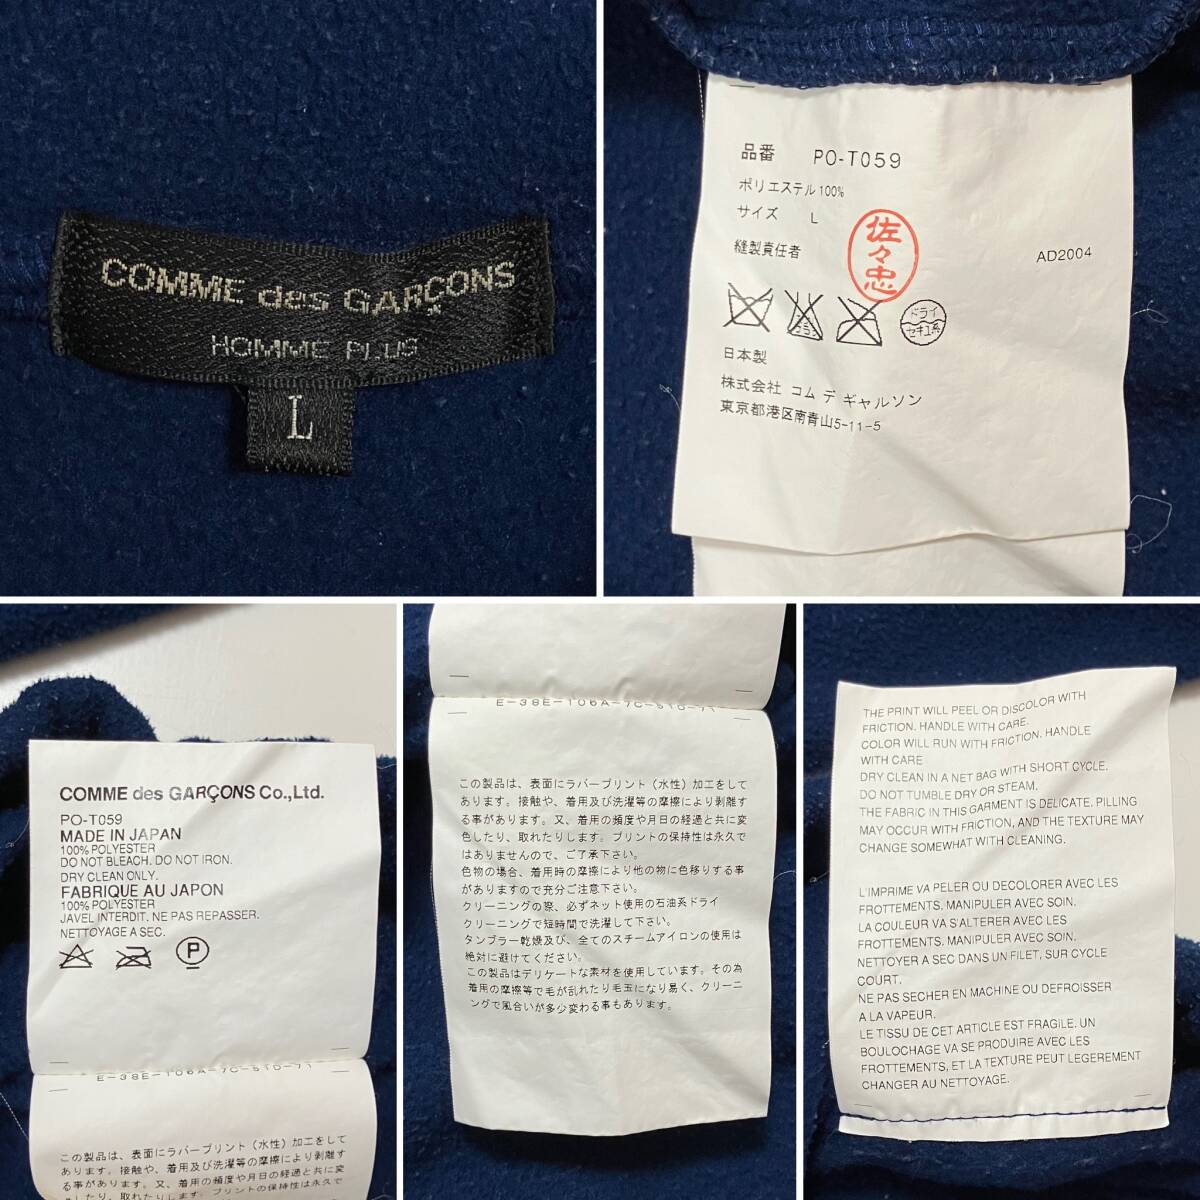 COMME des GARÇONS
HOMME PLUS
L
品番 PO-T059
ポリエステル100%
サイズ L
縫製責任者
佐々忠
AD2004
ドライ
セキユ系
日本製
株式会社 コム デ ギャルソン
東京都港区南青山5-11-5
COMME des GARÇONS Co.,Ltd.
PO-T059
MADE IN JAPAN
100% POLYESTER
DO NOT BLEACH. DO NOT IRON.
DRY CLEAN ONLY.
FABRIQUE AU JAPON
100% POLYESTER
JAVEL INTERDIT. NE PAS REPASSER.
NETTOYAGE A SEC.
P
E-38E-106A-7C-510-71
この製品は、表面にラバープリント（水性）加工をして
あります。接触や、着用及び洗濯等の摩擦により剥離す
る事があります。又、着用の頻度や月日の経過と共に変
色したり、取れたりします。プリントの保持性は永久で
E-38E-106A-7C-510-71
この製品は、表面にラバープリント（水性）加工をして
あります。接触や、着用及び洗濯等の摩擦により剥離す
る事があります。又、着用の頻度や月日の経過と共に変
色したり、取れたりします。プリントの保持性は永久で
はありませんので、ご了承下さい。
色物の場合、着用時の摩擦により他の物に色移りする事
がありますので充分ご注意下さい。
クリーニングの際、必ずネット使用の石油系ドライ
クリーニングで短時間で洗濯して下さい。
タンブラー乾燥及び、全てのスチームアイロンの使用は
絶対に避けてください。
この製品はデリケートな素材を使用しています。その為
着用の摩擦等で毛が乱れたり毛玉になり易く、クリーニ
ングで風合いが多少変わる事もあります。
THE PRINT WILL PEEL OR DISCOLOR WITH
FRICTION. HANDLE WITH CARE.
COLOR WILL RUN WITH FRICTION. HANDLE
WITH CARE
DRY CLEAN IN A NET BAG WITH SHORT CYCLE.
DO NOT TUMBLE DRY OR STEAM.
THE FABRIC IN THIS GARMENT IS DELICATE. PILLING
MAY OCCUR WITH FRICTION, AND THE TEXTURE MAY
CHANGE SOMEWHAT WITH CLEANING.
L'IMPRIME VA PELER OU DECOLORER AVEC LES
FROTTEMENTS. MANIPULER AVEC SOIN.
LA COULEUR VA S'ALTERER AVEC LES
FROTTEMENTS. MANIPULER AVEC SOIN.
NETTOYER A SEC DANS UN FILET, SUR CYCLE
COURT.
NE PAS SECHER EN MACHINE OU DEFROISSER
A LA VAPEUR.
LE TISSU DE CET ARTICLE EST FRAGILE. UN
BOULOCHAGE VA SE PRODUIRE AVEC LES
FROTTEMENTS, ET LA TEXTURE PEUT LEGEREMENT
CHANGER AU NETTOYAGE.